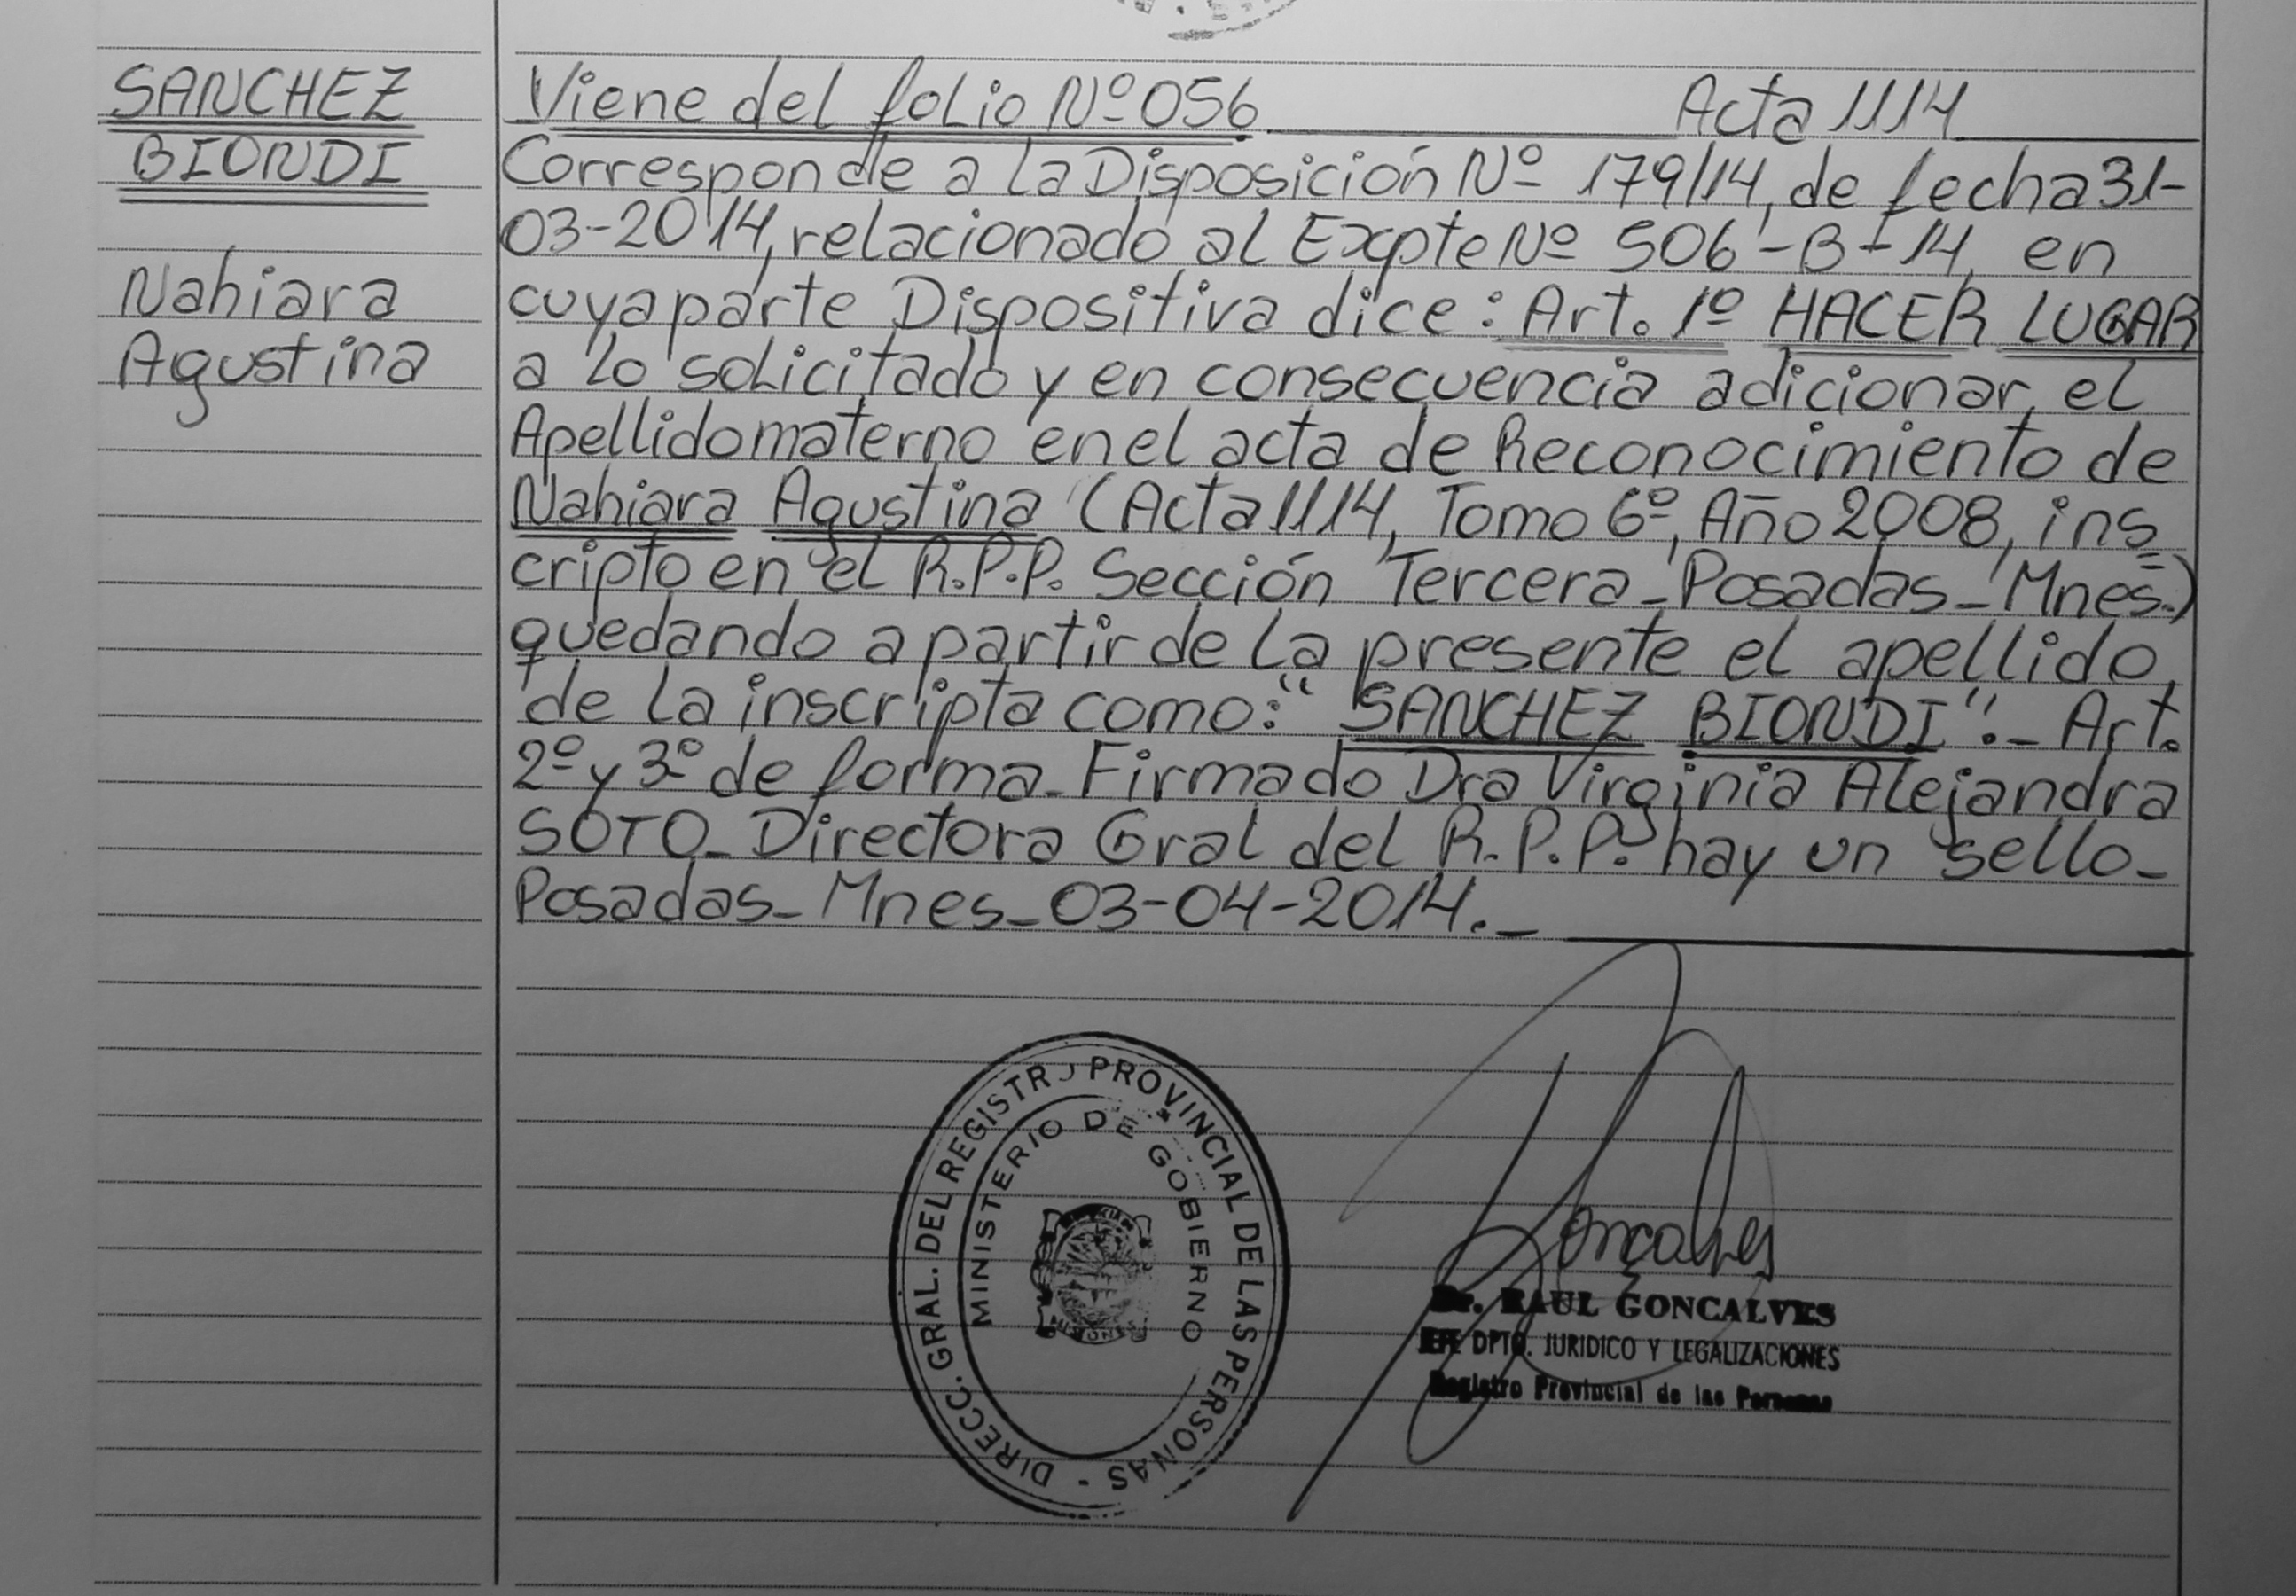 SANCHEZ
BIONDI
Nahiara
Agustina
Viene del folio Nº 056 Acta 1114
Corresponde a la Disposición Nº 179/14, de fecha 31-
03-2014, relacionado al Expte Nº 506-B-14, en
cuya parte Dispositiva dice: Art. 1º HACER LUGAR
a lo solicitado y en consecuencia adicionar, el
Apellido materno en el acta de Reconocimiento de
Nahiara Agustina (Acta 1114, Tomo 6º, Año 2008, ins
cripto en el R.P.P. Sección Tercera_Posadas_Mnes.)
quedando a partir de la presente el apellido,
de la inscripta como: "SANCHEZ BIONDI"._ Art.
2º y 3º de forma_Firmado Dra Virginia Alejandra
SOTO_Directora Gral del R.P.P. hay un sello_
Posadas_Mnes_03-04-2014._
DIRECC. GRAL. DEL REGISTRO PROVINCIAL DE LAS PERSONAS -
MINISTERIO DE GOBIERNO
MISIONES
Gonçalves
Dr. RAUL GONCALVES
JEFE DPTO. JURIDICO Y LEGALIZACIONES
Registro Provincial de las Personas